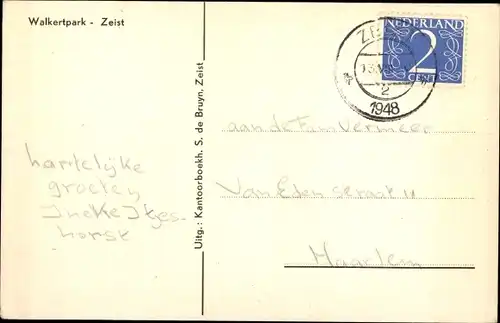 Walkertpark - Zeist
NEDERLAND
2
CENT
1948
2
Uitg.: Kantoorboekh. S. de Bruyn, Zeist
aan de Fam Vermeer
Van Eden straat 11
Haarlem
hartelijke
groeten
Ineke
horst